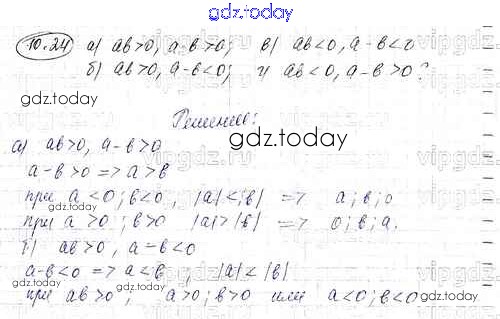 gdz.today
10.24 а) ab>0, a-b>0; в) ab<0, a-b<0
б) ab>0, a-b<0; г) ab<0, a-b>0?
gdz.today
Решение:
gdz.today
а) ab>0, a-b>0
a-b>0 => a>b
при a<0; b<0, |a|<|b| => a; b; 0
при a>0; b>0 |a|>|b| => 0; b; a.
б) ab>0, a-b<0
a-b<0 => a<b, |a|<|b|
при ab>0, a>0; b>0 или a<0; b<0
gdz.today
gdz.today